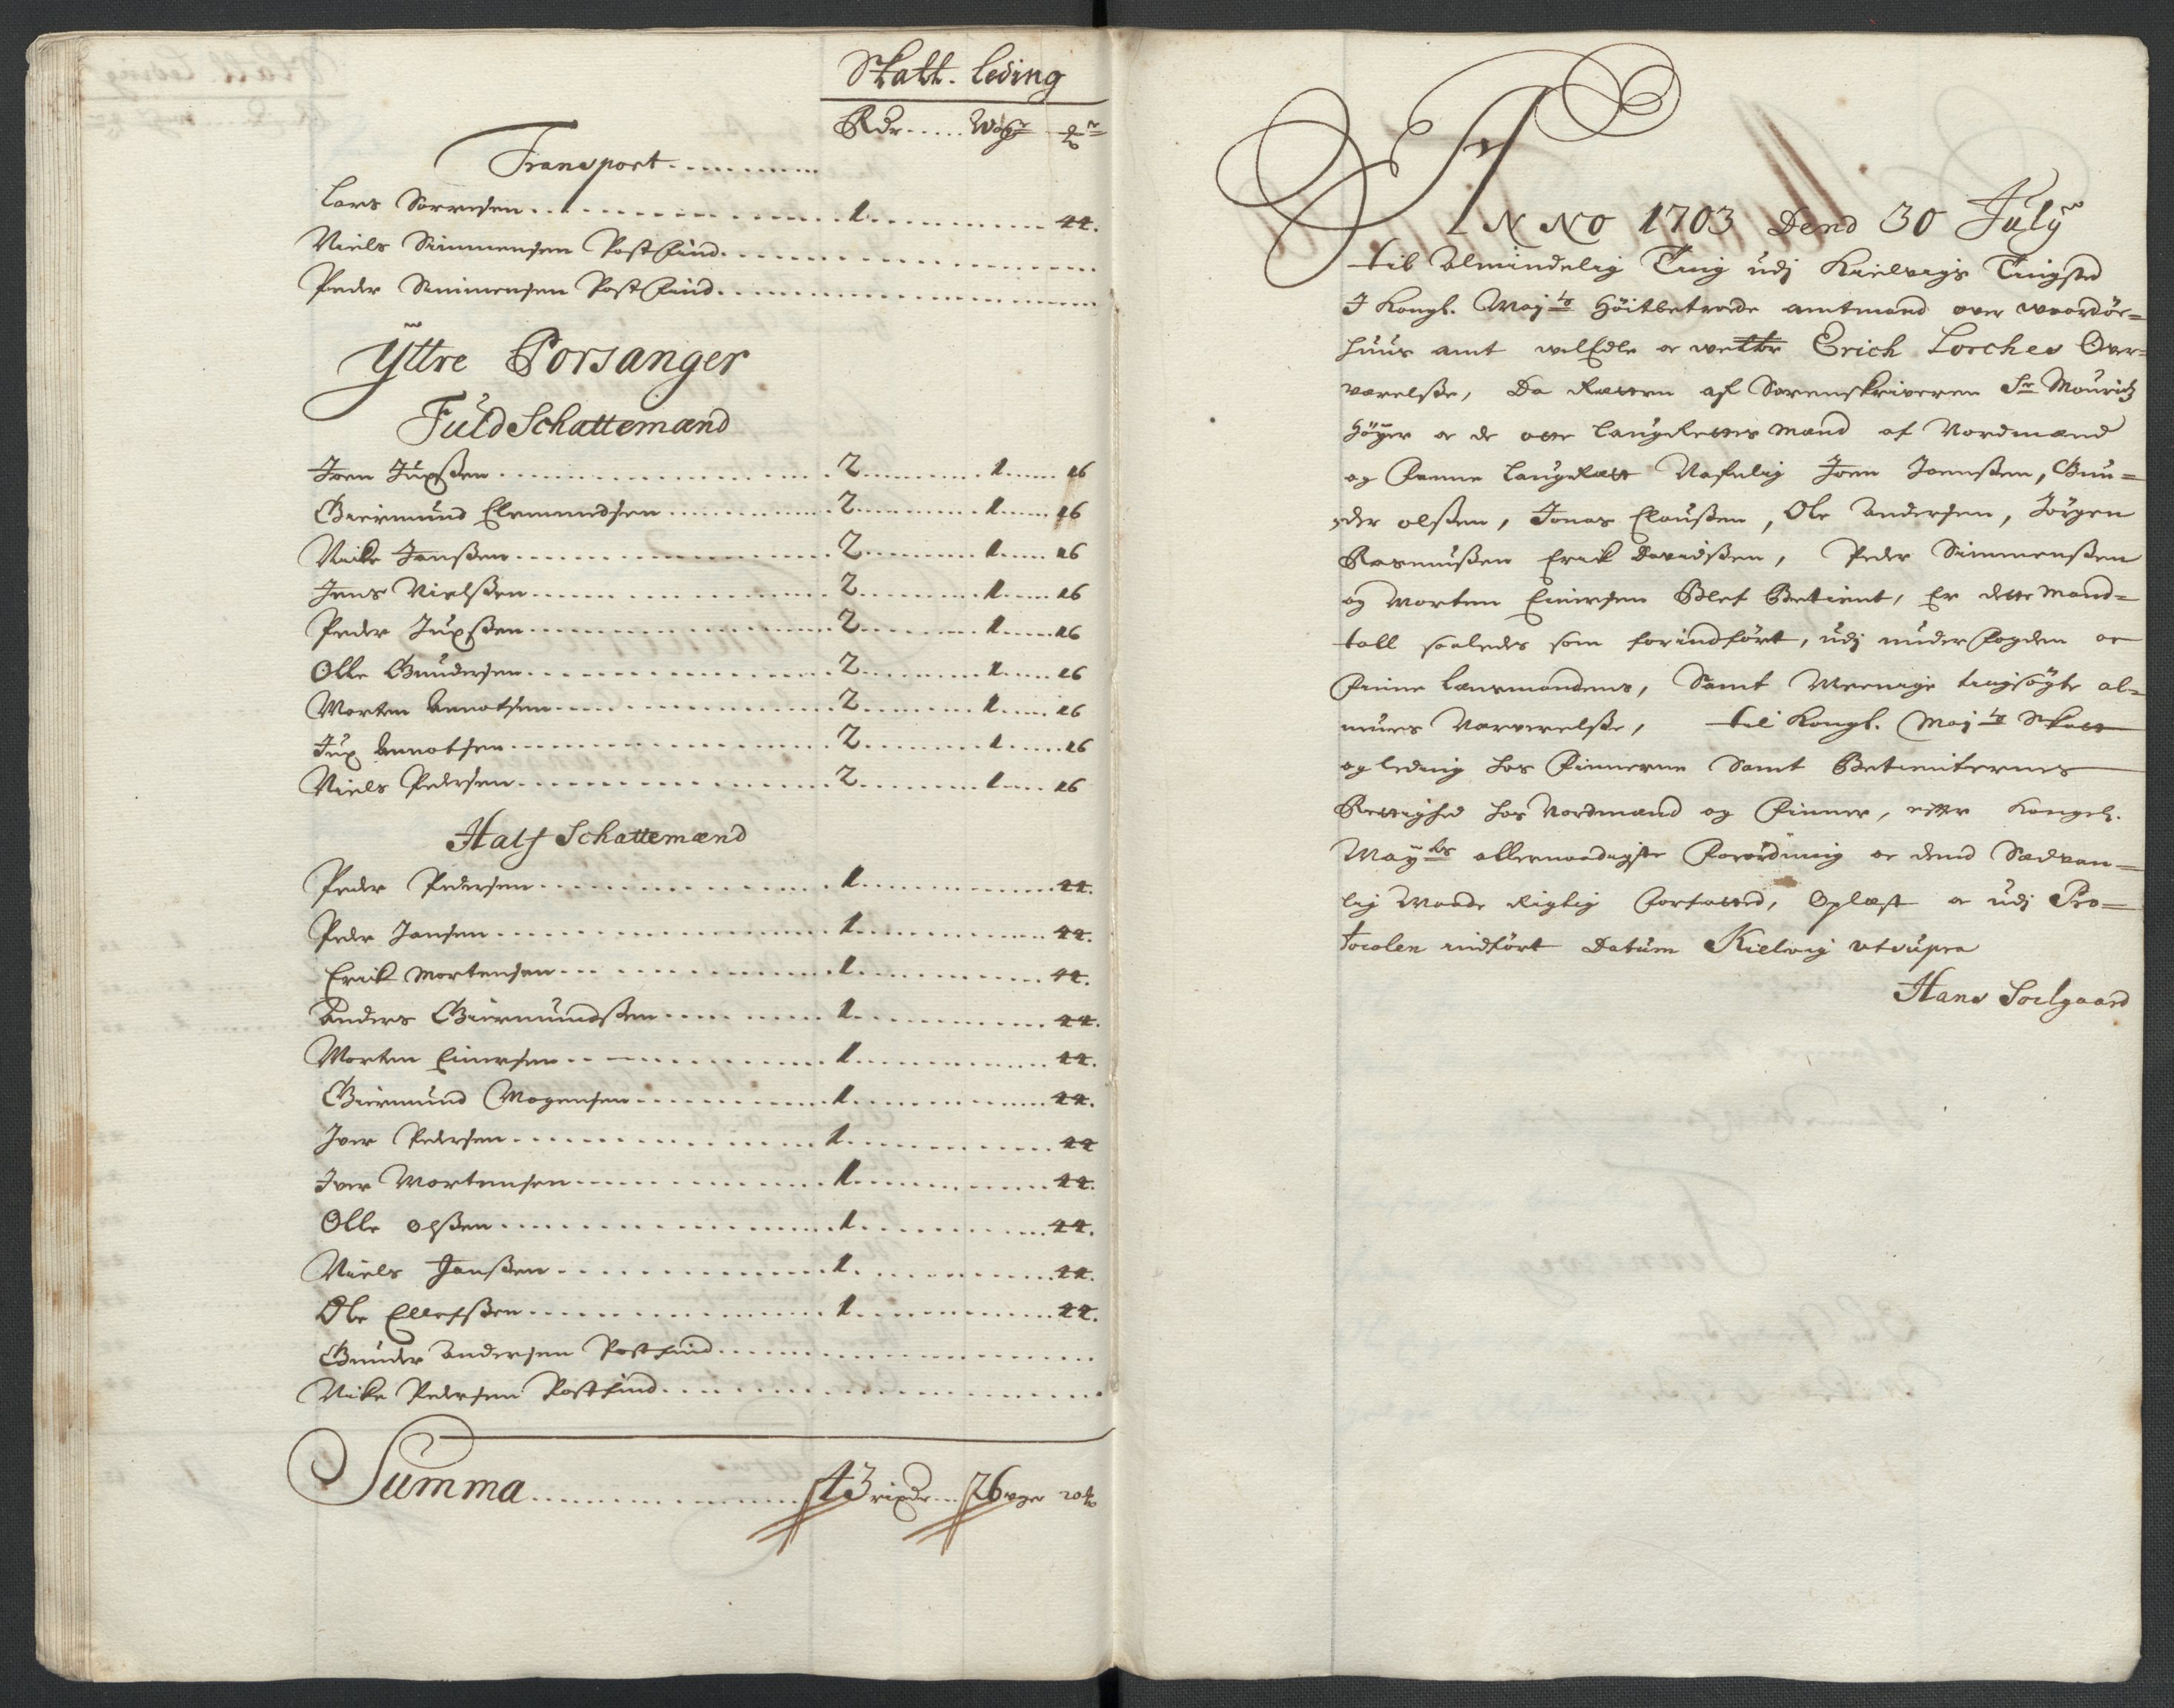 Skatt. Leding
Rdr..... Wog r
Transport
Lars Sørensen 1 22.
Niels Simmensen Post find
Peder Simmensen Post find
Ÿttre Porsanger
Fuld Schattemænd
Joen Jupssen 2 1 16
Giermund Clemmendsen 2 1 16
Nicke Jonssen 2 1 16
Jens Nielssen 2 1 16
Peder Jupssen 2 1 16
Olle Gundersen 2 1 16
Morten Amotsen 2 1 16
Jup Amotsen 2 1 16
Niels Pedersen 2 1 16
Half Schattemænd
Peder Pedersen 1 22.
Peder Jonsen 1 22.
Erick Mortensen 1 22.
Anders Giermundssen 1 22.
Morten Einersen 1 22.
Giermund Mogensen 1 22.
Iver Pedersen 1 22
Iver Mortensen 1 22.
Olle olssen 1 22.
Niels Jonssen 1 22.
Ole Ellefssen 1 22.
Gunder Andersen Post find
Nicke Pedersen Post find
Summa 43 rixdr 26 woger 20
ANNO 1703 Dend 30 Julÿ
til Almindelig Ting udj Kielvigs Tingsted
I Kongl. Maj ts Høitbetroede amtmand over Waardøe=
huus amt welEdle oc Erich Lorches Over=
værelsse, Da Retten af Sorenskriveren Sr Mouridtz
Høyer oc de otte laugRettes mænd af Nordmænd
og finne laugRett Nafnlig Joen Joenssen, Gun=
der olssen, Jonas Claussen, Ole Andersen, Jørgen
Rasmussen Erick Davidssen, Peder Simmenssen
og Morten Einersen Blef Betient, Er dette Mand=
tall saaledes som forindført, udj underfogden oc
finne Lensmandens, Samt Meenige tingsøgte al=
mues Nærverelsse, til Kongl. Maj ts Skatt
og leding hos finnerne Samt Betienternes
Rettighed hos Nordmænd og finner, efter Kongel.
Maÿ ts allernaadigste forordning oc dend Sædvan=
lig Maade Rigtig forfatted, Oplæst oc udj Pro=
tocolen indført Datum Kielvig ut supra
Hans Soelgaard